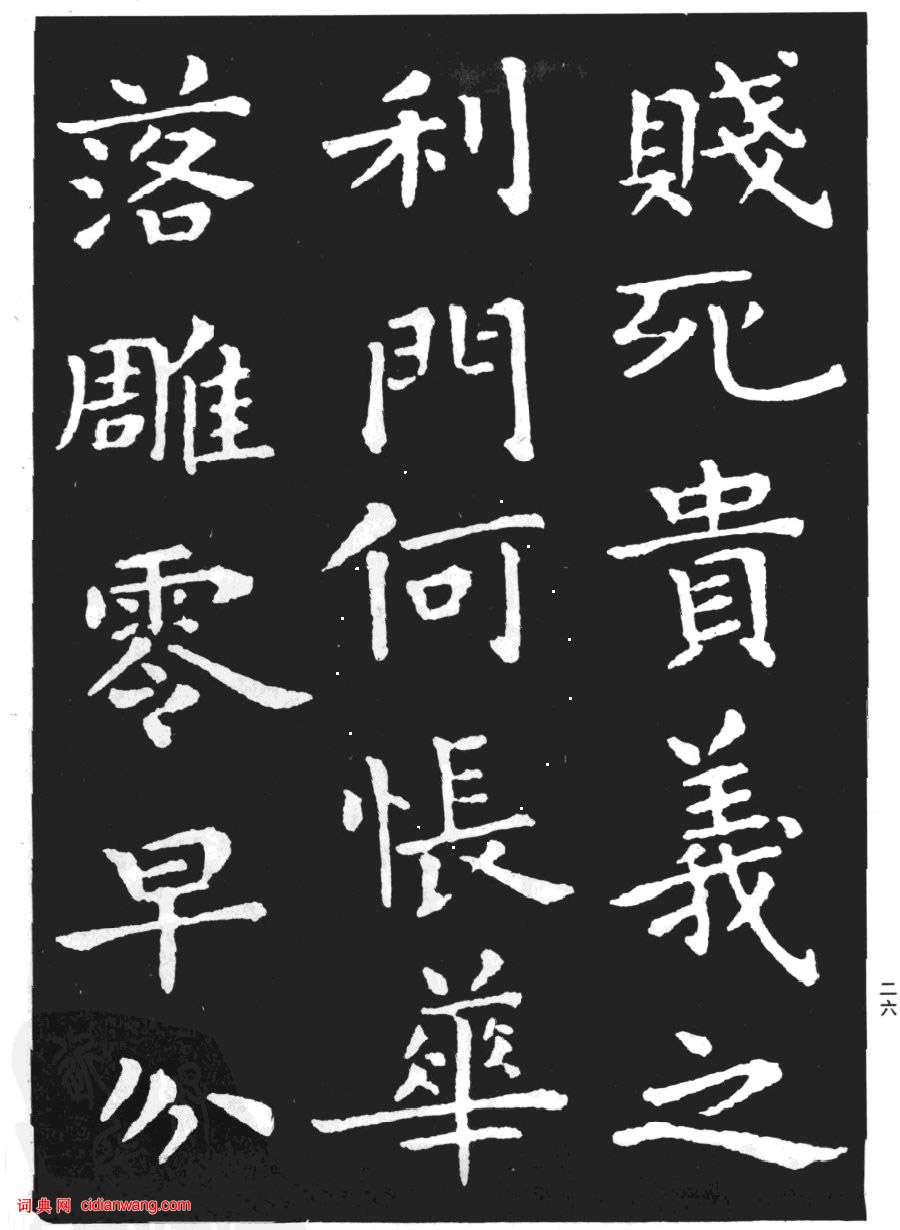 賤死貴義之
利門何悵華
落雕零早分
二六
词典网 cidianwang.com